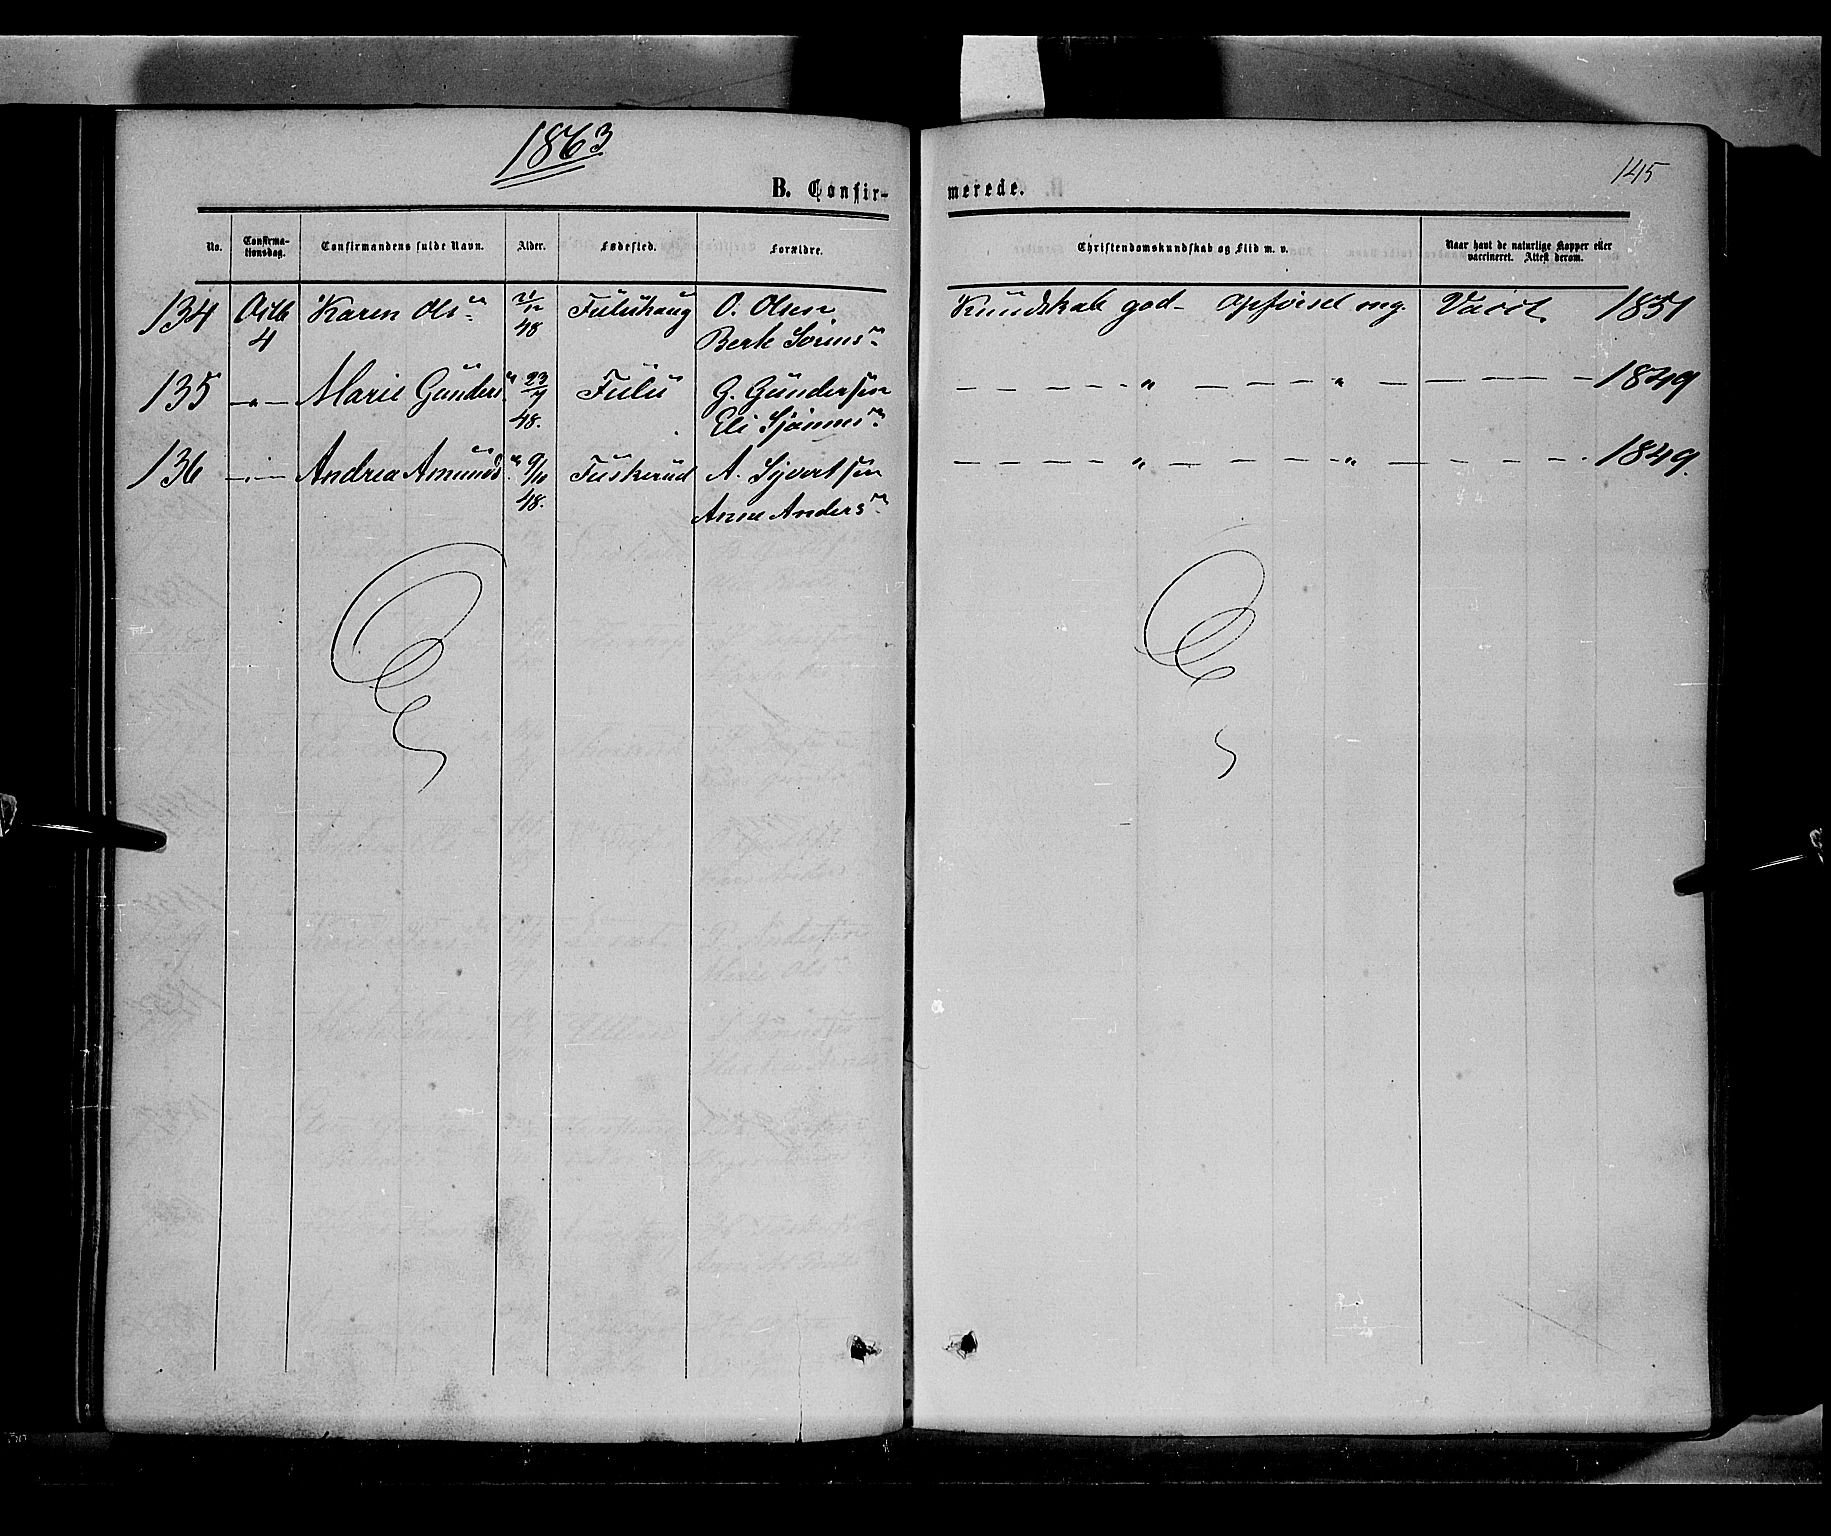 1863
145
B. Confir- merede.
No. Confirma-tionsdag. Confirmandens fulde Navn. Alder. Fødested. Forældre. Christendomskundskab og Flid m. v. Naar havt de naturlige Kopper eller vaccineret. Attest derom.
134 Octb 4 Karen Ols n /12 48 Fuluhaug O. Olsen Kundskab god - Opførsel mg. Vacct. 1851
Berte Sørens n
135 - " - Marie Gunders n 23/7 48. Fulu G. Gundersen - - - " - - - " - - - - 1849
Eli
136 - " - Andrea Amunds n 9/10 48. Fuskerud A. Syvertsen - - - " - - - " - - - - 1849.
Anne Anders n